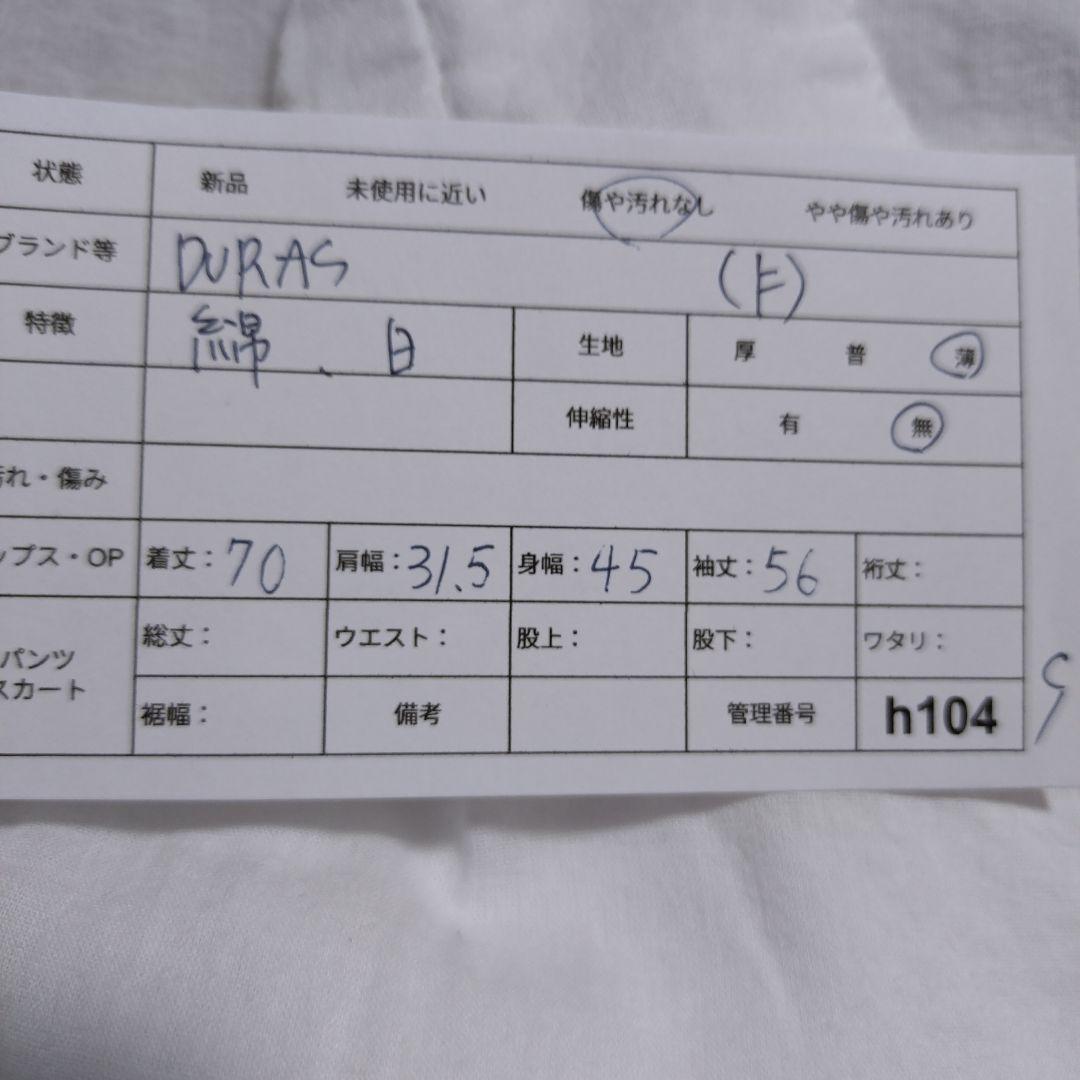 状態 新品 未使用に近い 傷や汚れなし やや傷や汚れあり
ブランド等 DURAS (F)
特徴 綿、白 生地 厚 普 薄
伸縮性 有 無
汚れ・傷み
ップス・OP 着丈：70 肩幅：31.5 身幅：45 袖丈：56 裄丈：
パンツ 総丈： ウエスト： 股上： 股下： ワタリ：
スカート
裾幅： 備考 管理番号 h104